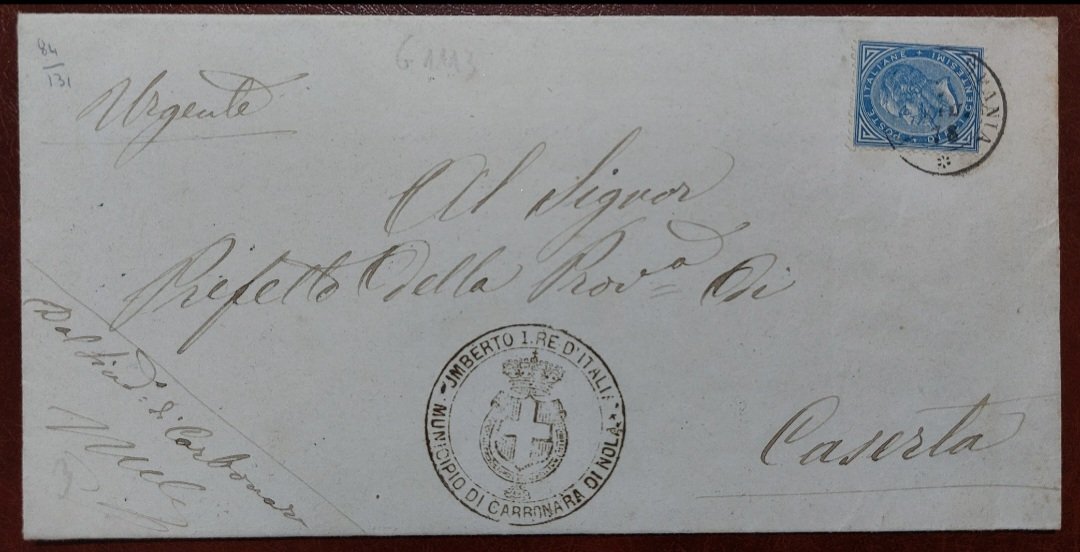 84
131
G 1113
Urgente
POSTE ITALIANE
C. DIECI CENTESIMI 10
ANIA
78
Al Signor
Prefetto Della Prov.a Di
Caserta
UMBERTO I. RE D'ITALIA
MUNICIPIO DI CARBONARA DI NOLA
Dal Sind.o di Carbonara